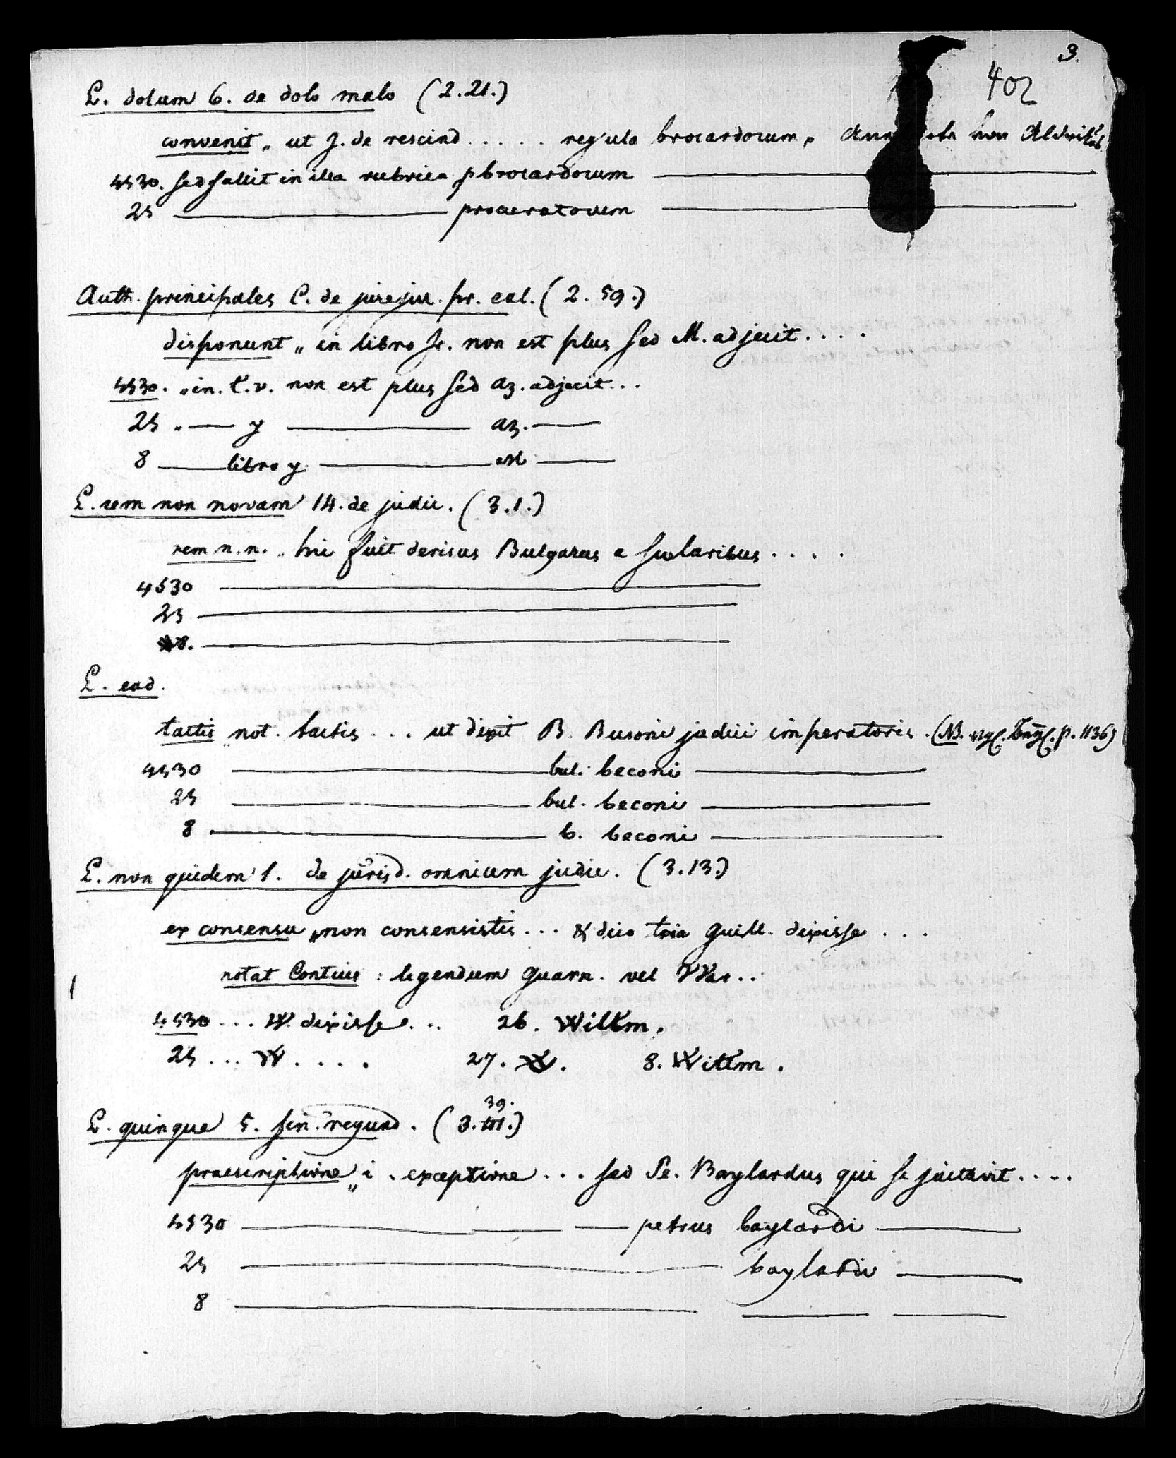 3.
402
L. dolum 6. de dolo malo (2.21.)
convenit „ ut J. de rescind . . . . . regula brocardorum „ hon
4530. sed fallit in illa rubrica pbrocardorum
25 procuratorum
Auth. principales C. de jurejur. pr. cal. (2. 59.)
disponunt „ in libro Jr. non est plus sed M. adjecit . . . .
4530. „ in. t. v. non est plus sed az. adjecit . . .
25 „ y az.
8 libro y. M
L. rem non novam 14. de judic. (3.1.)
rem n. n. „ hic fuit derisus Bulgarus a scolaribus . . . .
4530
25
8.
L. ead.
tactis not. tactis . . . ut dixit B. Busoni judici imperatoris . (NB. p. 1136)
4530 bul. beconi
25 bul. beconi
8 b. beconi
L. non quidem 1. de jurisd. omnium judic. (3.13.)
ex consensu „ non consensistis . . . & dico tria Guill. dixisse . . .
notat Contius : legendum Guarn. vel War. .
4530 . . . W. dixisse . . . 26. Willm.
25 . . . W . . . . 27. W. 8. Willm.
L. quinque 5. fin. regund. (3. 39.)
praescriptione „ i . exceptione . . . sed Pe. Baylardus qui se jactavit . . . .
4530 petrus baylardi
25 baylardi
8